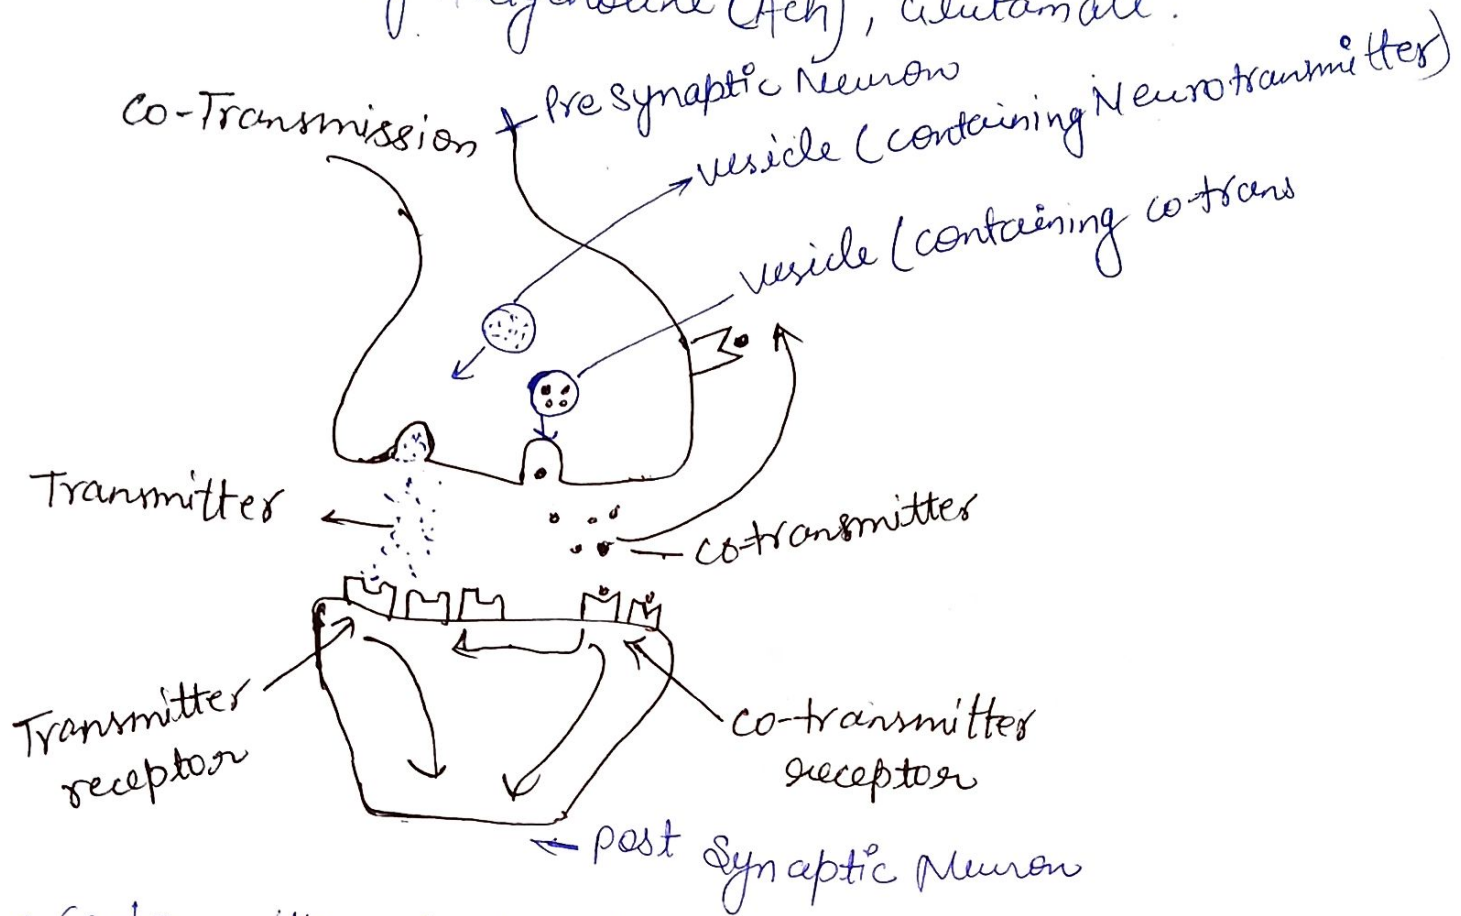 (Ach), Glutamate.
Co-Transmission
Pre Synaptic Neuron
vesicle (containing Neurotransmitter)
vesicle (containing co-trans
Transmitter
co-transmitter
Transmitter
receptor
co-transmitter
receptor
Post Synaptic Neuron